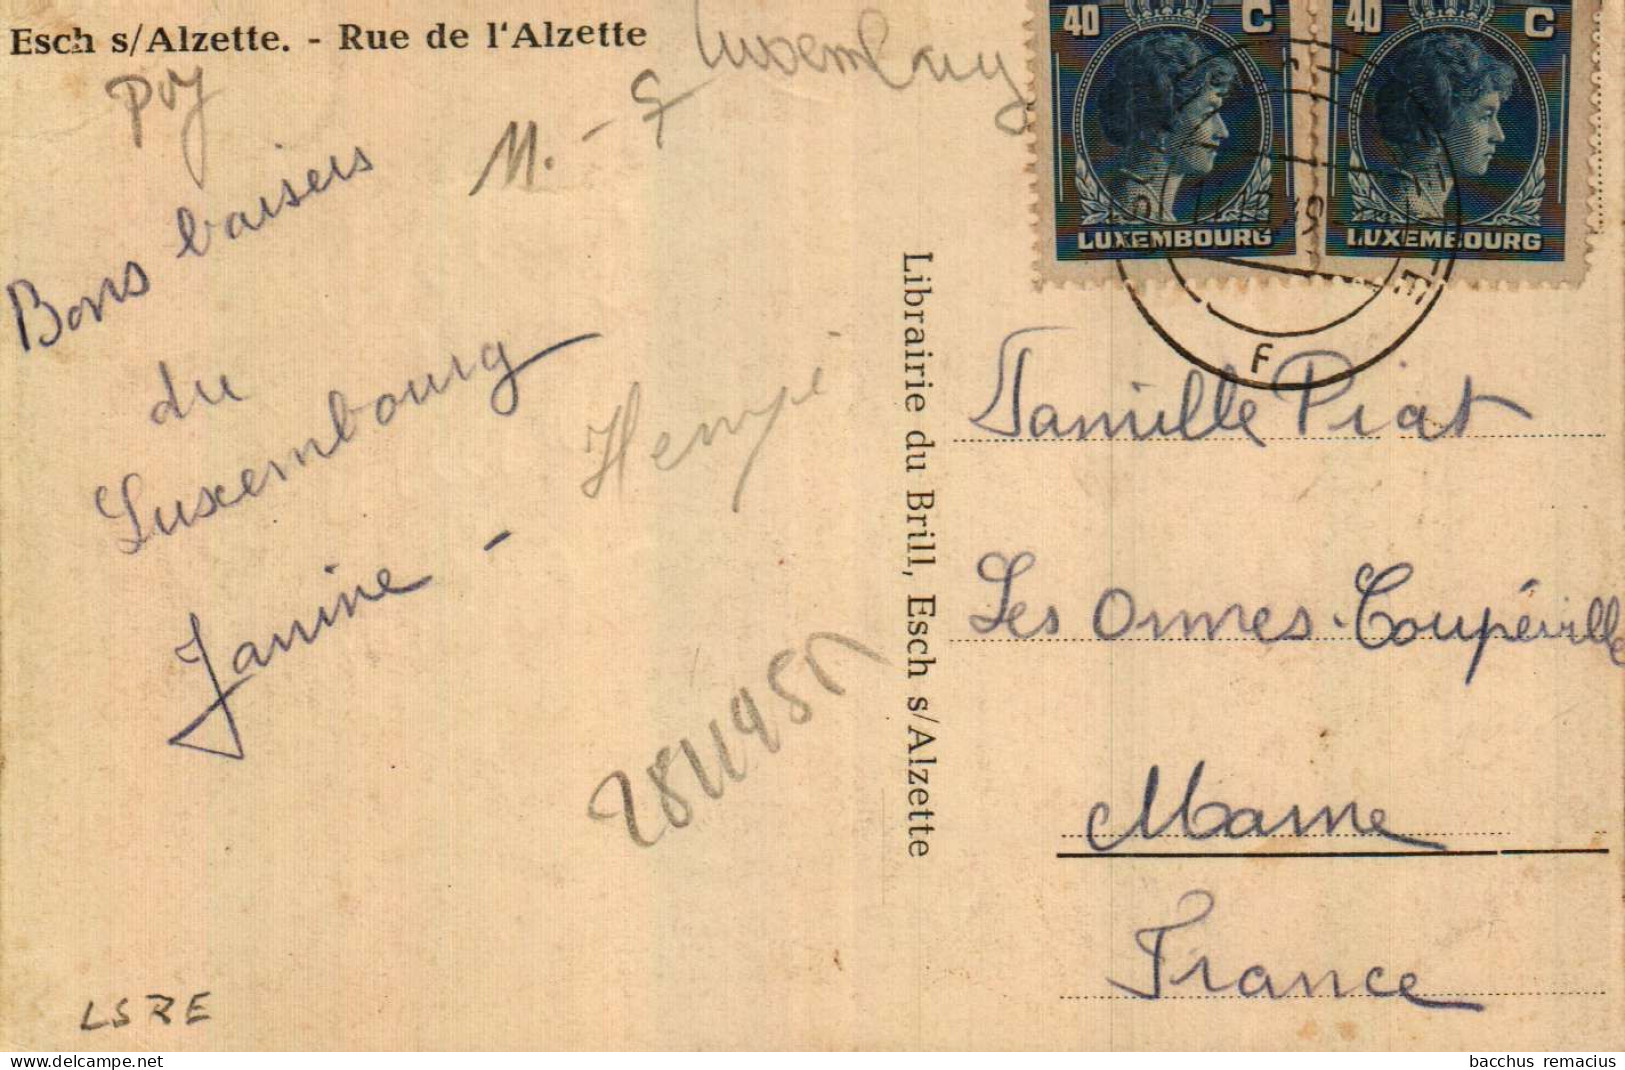 Esch s/Alzette. - Rue de l'Alzette
Luxemburg
M. -
Bons baisers
du
Luxembourg
Janine -
LSRE
Librairie du Brill, Esch s/Alzette
40 C
LUXEMBOURG
40 C
LUXEMBOURG
F
Famille Piat
Les Ormes. Coupéville
Marne
France
www.delcampe.net
bacchus remacius